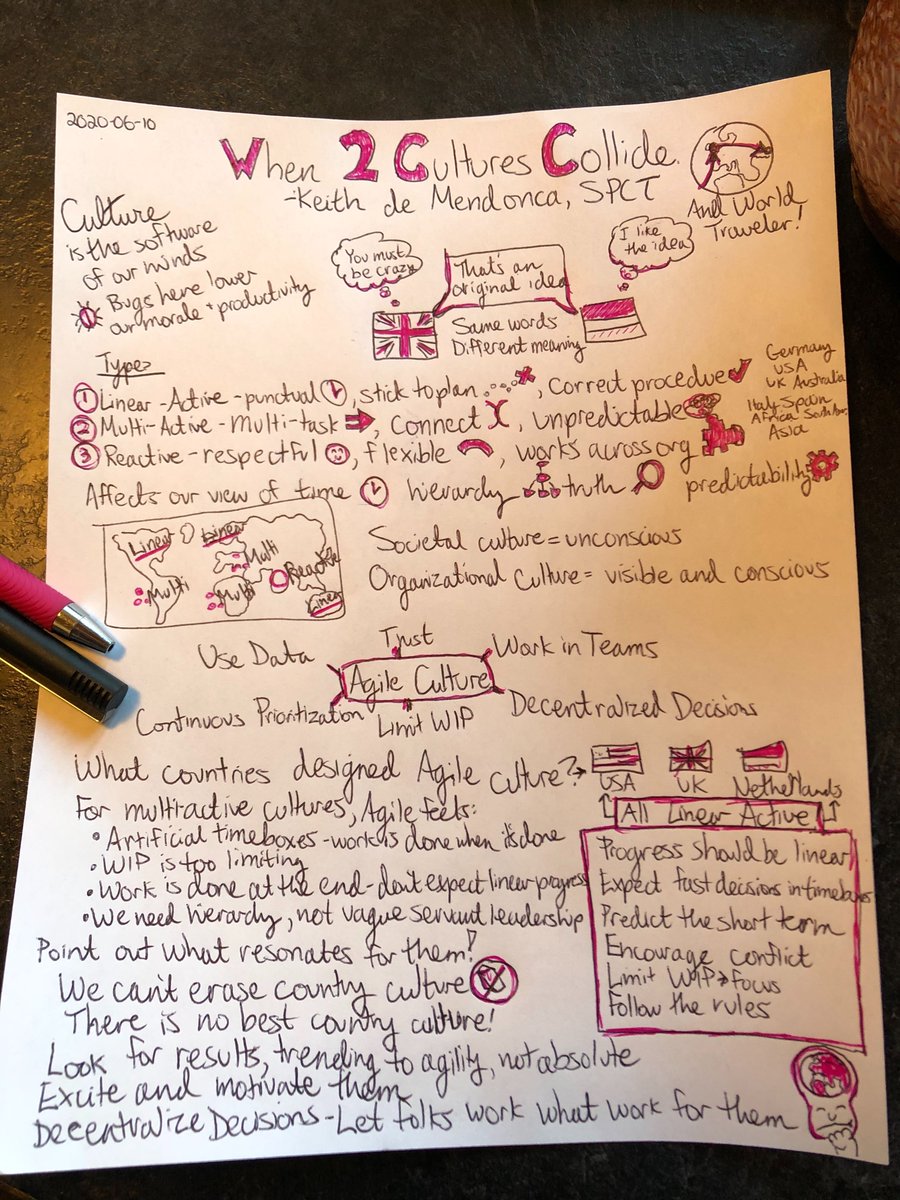 2020-06-10
When 2 Cultures Collide.
-Keith de Mendonca, SPCT
And World
Traveler!
Culture
is the software
of our minds
Bugs here lower
our morale + productivity
You must
be crazy
That's an
original idea
I like
the idea
Same words
Different meaning
Types
1 Linear-Active-punctual, stick to plan, correct procedure
Germany
USA
UK Australia
2 Multi-Active-Multi-task, connect, unpredictable
Italy Spain
Africa South Amer.
Asia
3 Reactive-respectful, flexible, works across org
Affects our view of time hierarchy truth predictability
Linear Linear
Multi Multi Multi Reactive
Linear
Societal culture = unconscious
Organizational culture = visible and conscious
Use Data Trust Work in Teams
Agile Culture
Continuous Prioritization Limit WIP Decentralized Decisions
What countries designed Agile culture?→
USA UK Netherlands
All Linear Active
For multiactive cultures, Agile feels:
• Artificial timeboxes - work is done when it's done
• WIP is too limiting
• Work is done at the end - don't expect linear progress
• We need hierarchy, not vague servant leadership
Progress should be linear
Expect fast decisions in timeboxes
Predict the short term
Encourage conflict
Limit WIP → focus
Follow the rules
Point out what resonates for them!
We can't erase country culture
There is no best country culture!
Look for results, trending to agility, not absolute
Excite and motivate them
Decentralize Decisions - Let folks work what work for them